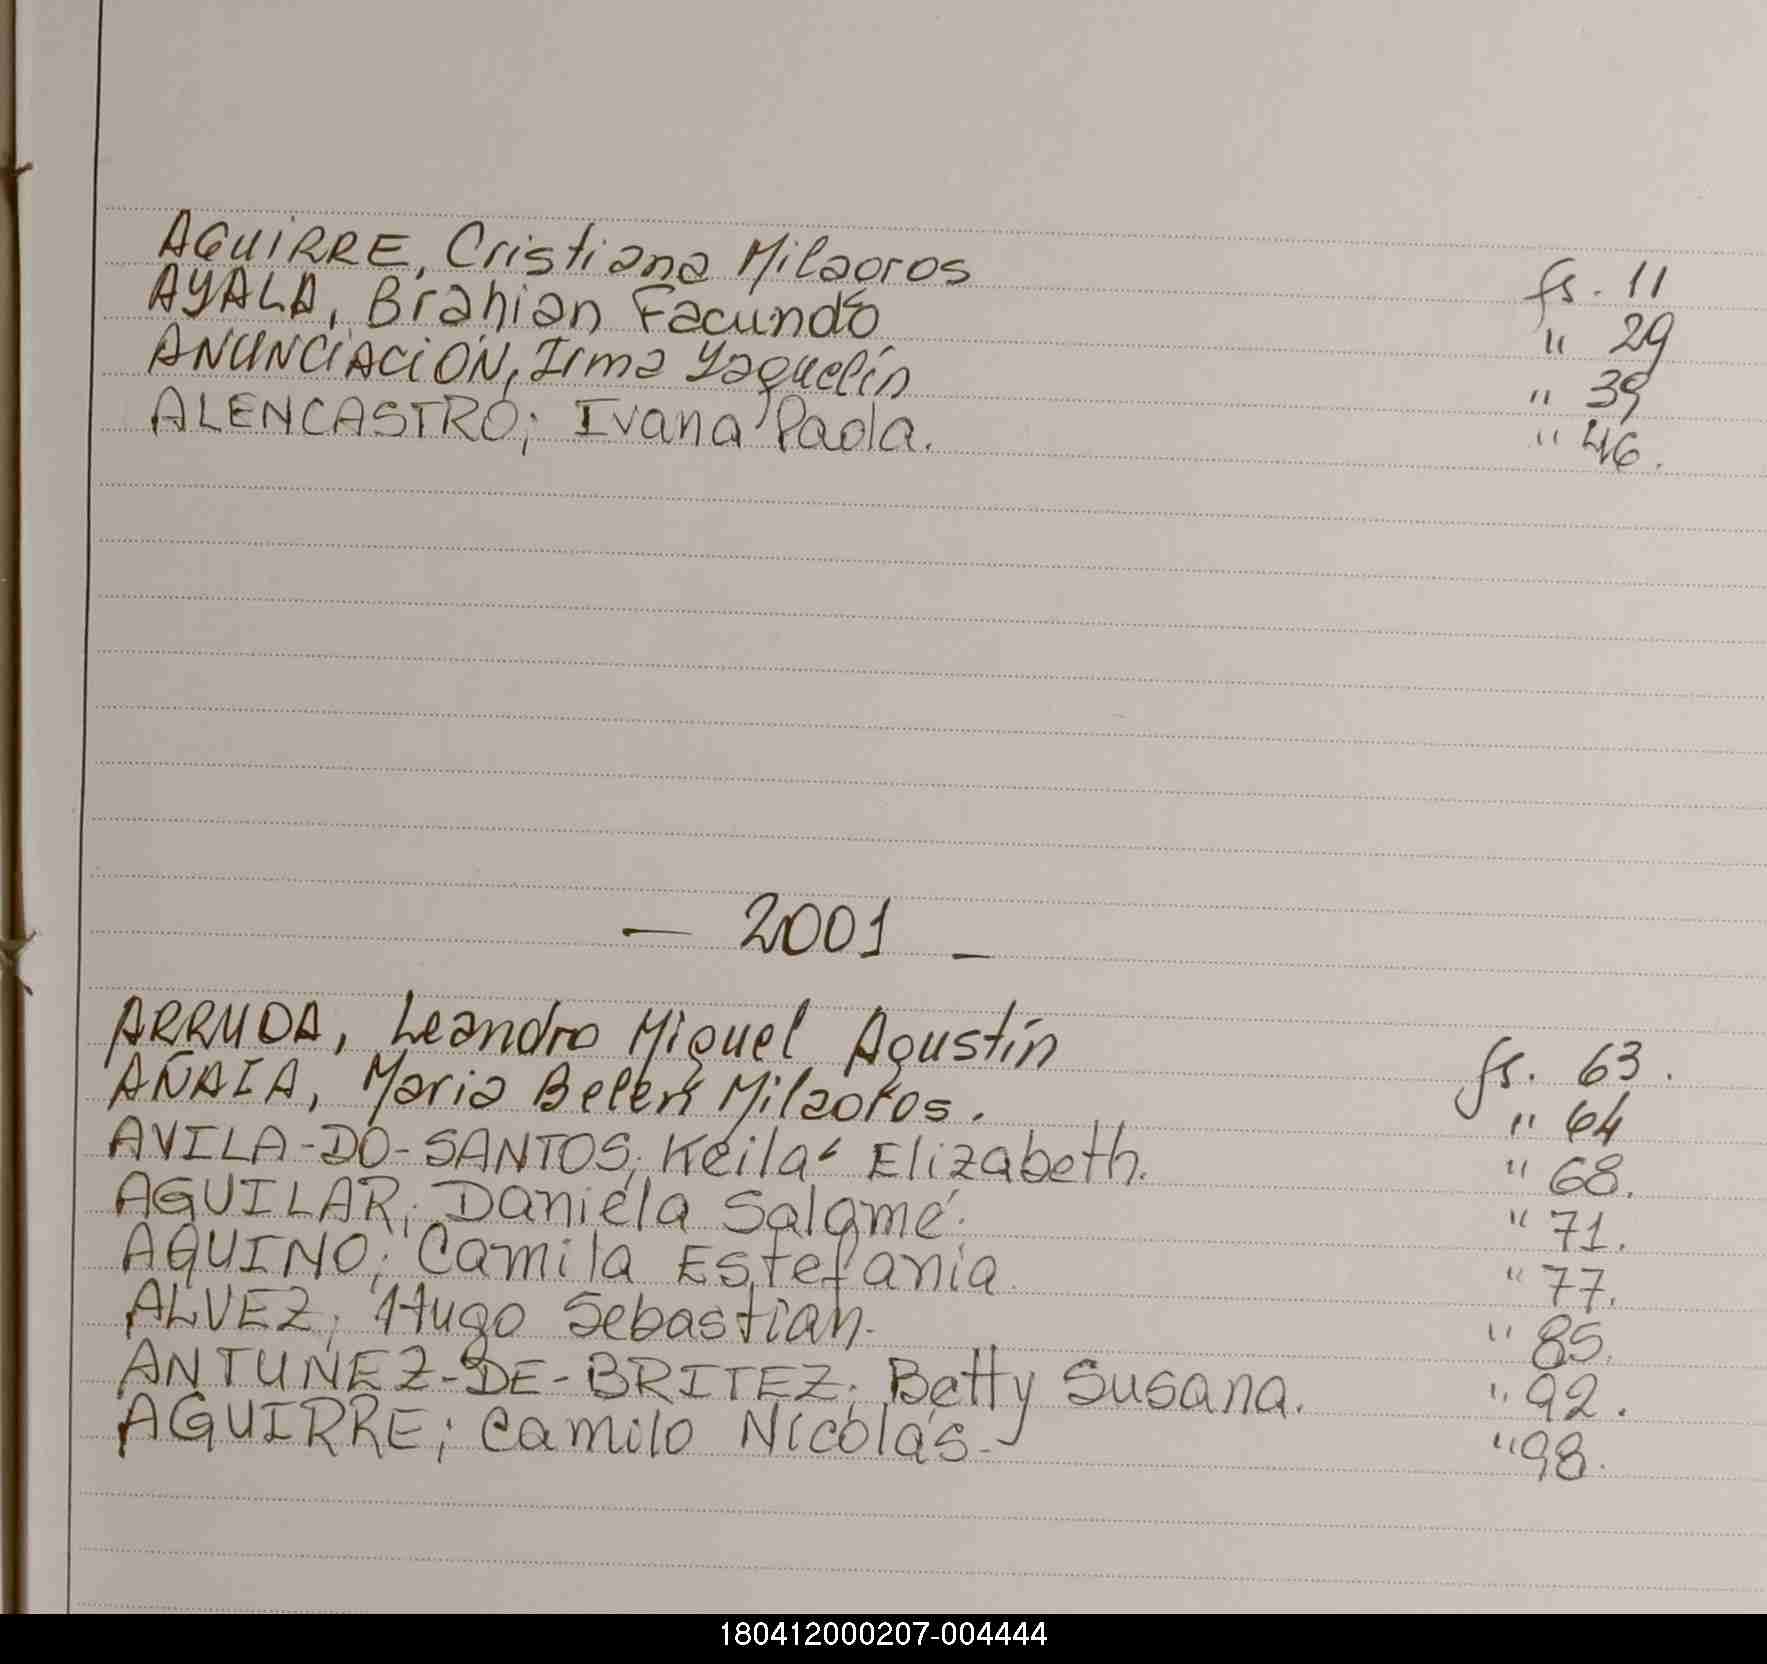 AGUIRRE, Cristiana Milagros fs. 11
AYALA, Brahian Facundo " 29
ANUNCIACIÓN, Irma Yaquelín " 39
ALENCASTRO; Ivana Paola. " 46.
— 2001 —
ARRUDA, Leandro Miguel Agustín fs. 63.
AÑAIA, Maria Belen Milagros. " 64
AVILA-DO-SANTOS; Keila Elizabeth. " 68.
AGUILAR; Daniela Salomé. " 71.
AQUINO; Camila Estefania. " 77.
ALVEZ; Hugo Sebastian. " 85.
ANTUNEZ-DE-BRITEZ; Betty Susana. " 92.
AGUIRRE; Camilo Nicolás. " 98.
180412000207-004444